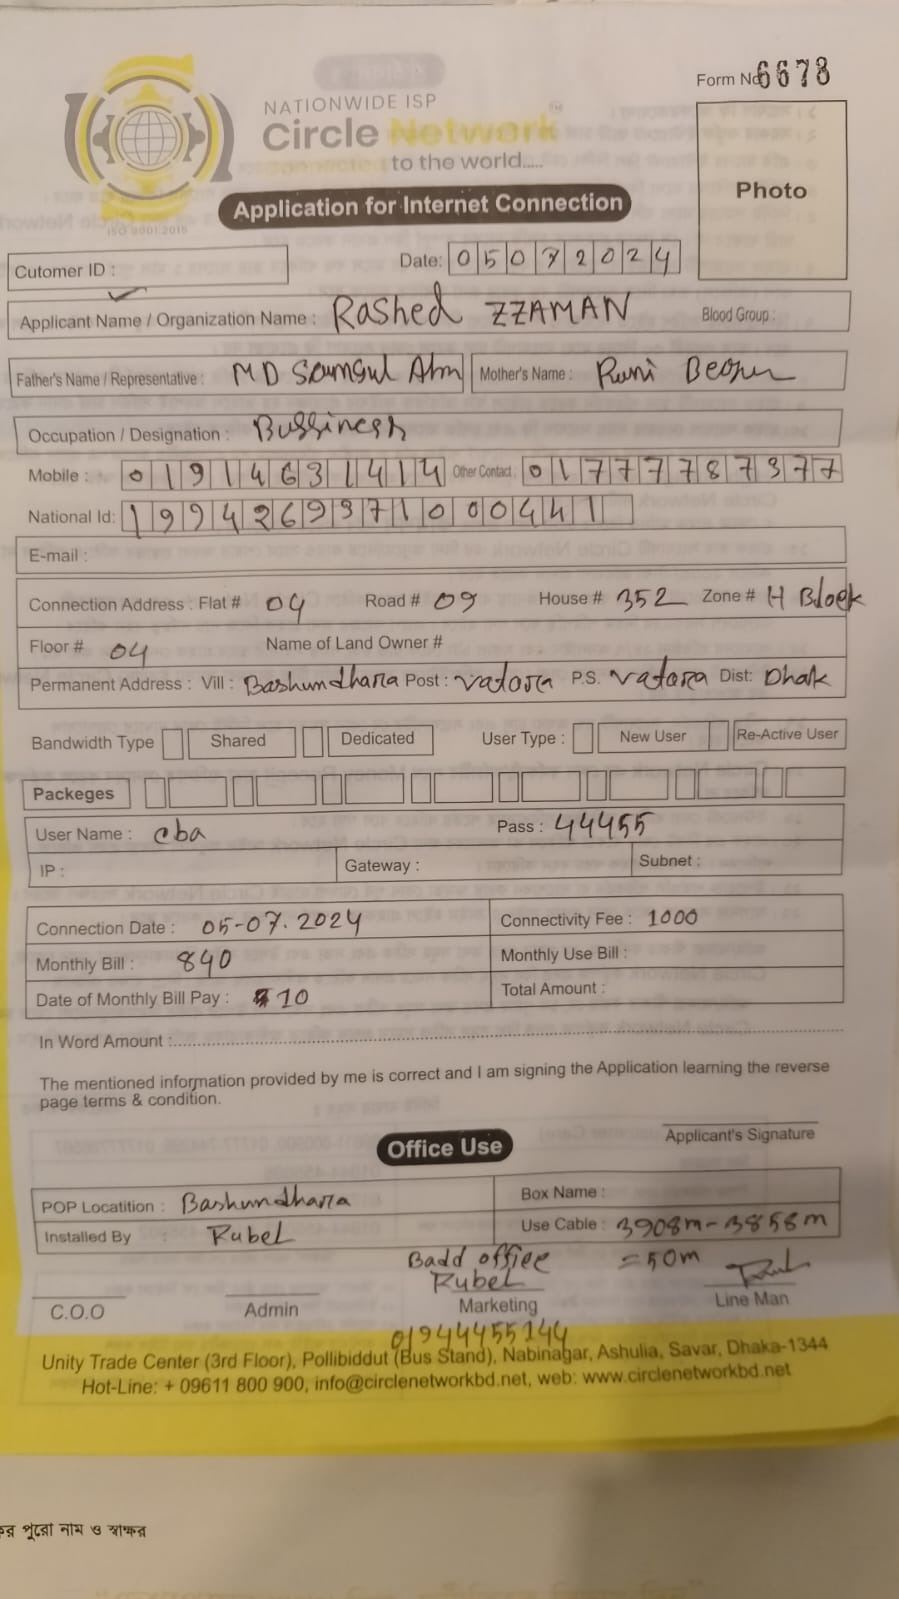 Form No 6678
NATIONWIDE ISP
Circle Network
to the world.....
ISO 9001:2015
Photo
Application for Internet Connection
Cutomer ID :
Date: 05072024
Applicant Name / Organization Name : Rashed ZZAMAN Blood Group :
Father's Name / Representative : MD Samsul Alm Mother's Name : Runi Begum
Occupation / Designation : Bussiness
Mobile : 01914631414 Other Contact : 01777787377
National Id: 19942699371000441
E-mail :
Connection Address : Flat # 04 Road # 09 House # 352 Zone # H Block
Floor # 04 Name of Land Owner #
Permanent Address : Vill : Bashundhara Post : vatara P.S. vatara Dist: Dhak
Bandwidth Type Shared Dedicated User Type : New User Re-Active User
Packeges
User Name : cba Pass : 44455
IP : Gateway : Subnet :
Connection Date : 05-07.2024 Connectivity Fee : 1000
Monthly Bill : 840 Monthly Use Bill :
Date of Monthly Bill Pay : 10 Total Amount :
In Word Amount :
The mentioned information provided by me is correct and I am signing the Application learning the reverse
page terms & condition.
Applicant's Signature
Office Use
POP Locatition : Bashundhara Box Name :
Installed By : Rubel Use Cable : 3908m-3858m
Badd office =50m
Rubel
C.O.O Admin Marketing Line Man
01944455144
Unity Trade Center (3rd Floor), Pollibiddut (Bus Stand), Nabinagar, Ashulia, Savar, Dhaka-1344
Hot-Line: + 09611 800 900, info@circlenetworkbd.net, web: www.circlenetworkbd.net
পুরো নাম ও স্বাক্ষর